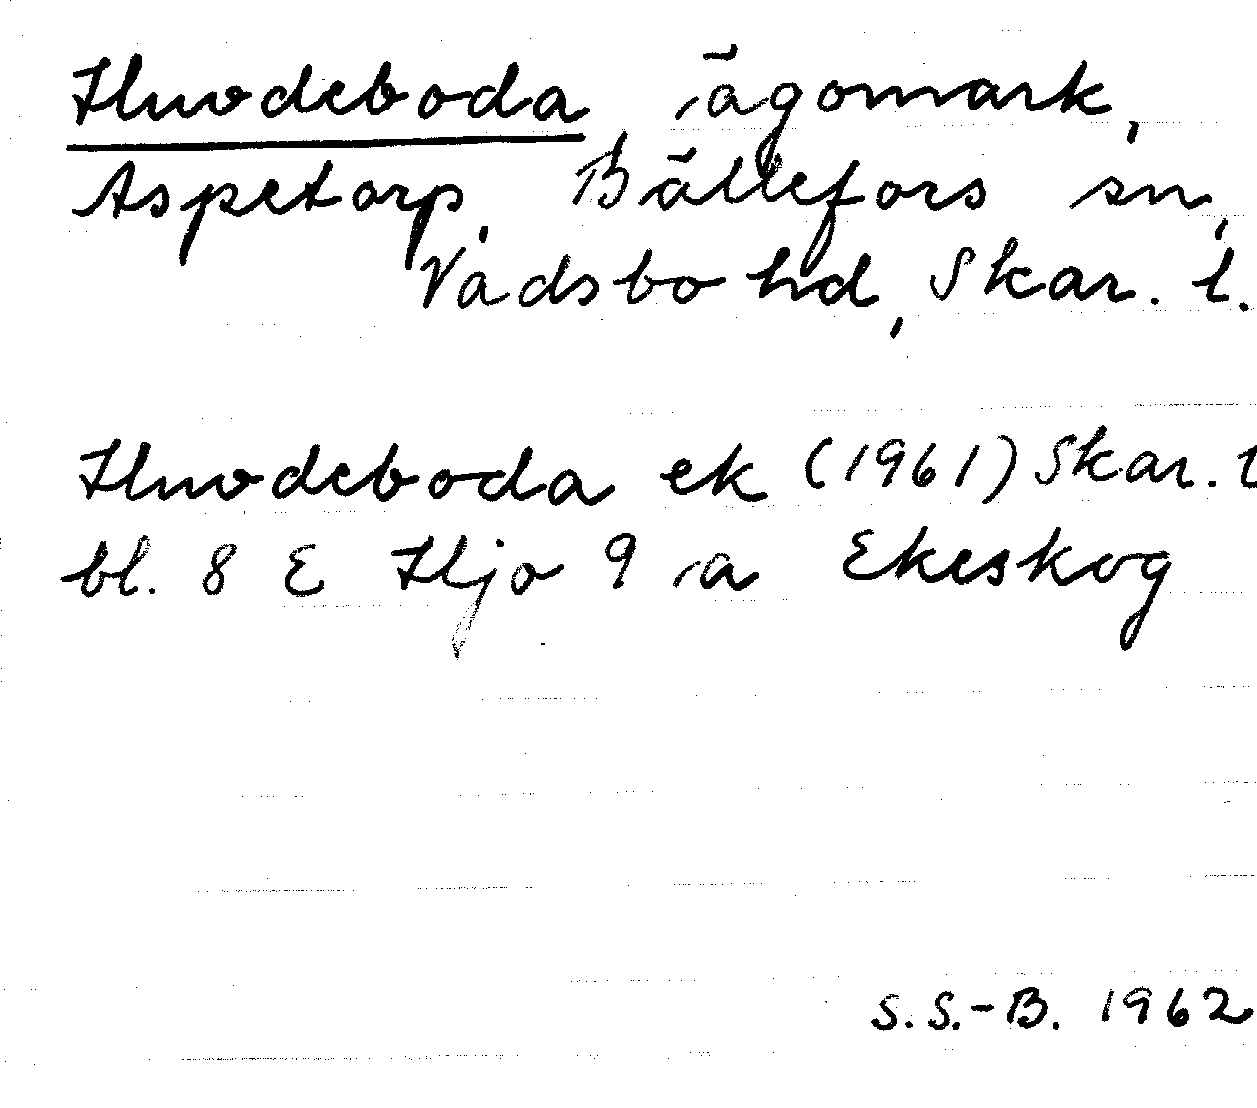 Huvdeboda, ägomark,
Aspetorp, Bällefors sn,
Vadsbo hd, Skar. l.
Huvdeboda ek (1961) Skar. l
bl. 8 E Hjo 9 a Ekeskog
S.S.-B. 1962